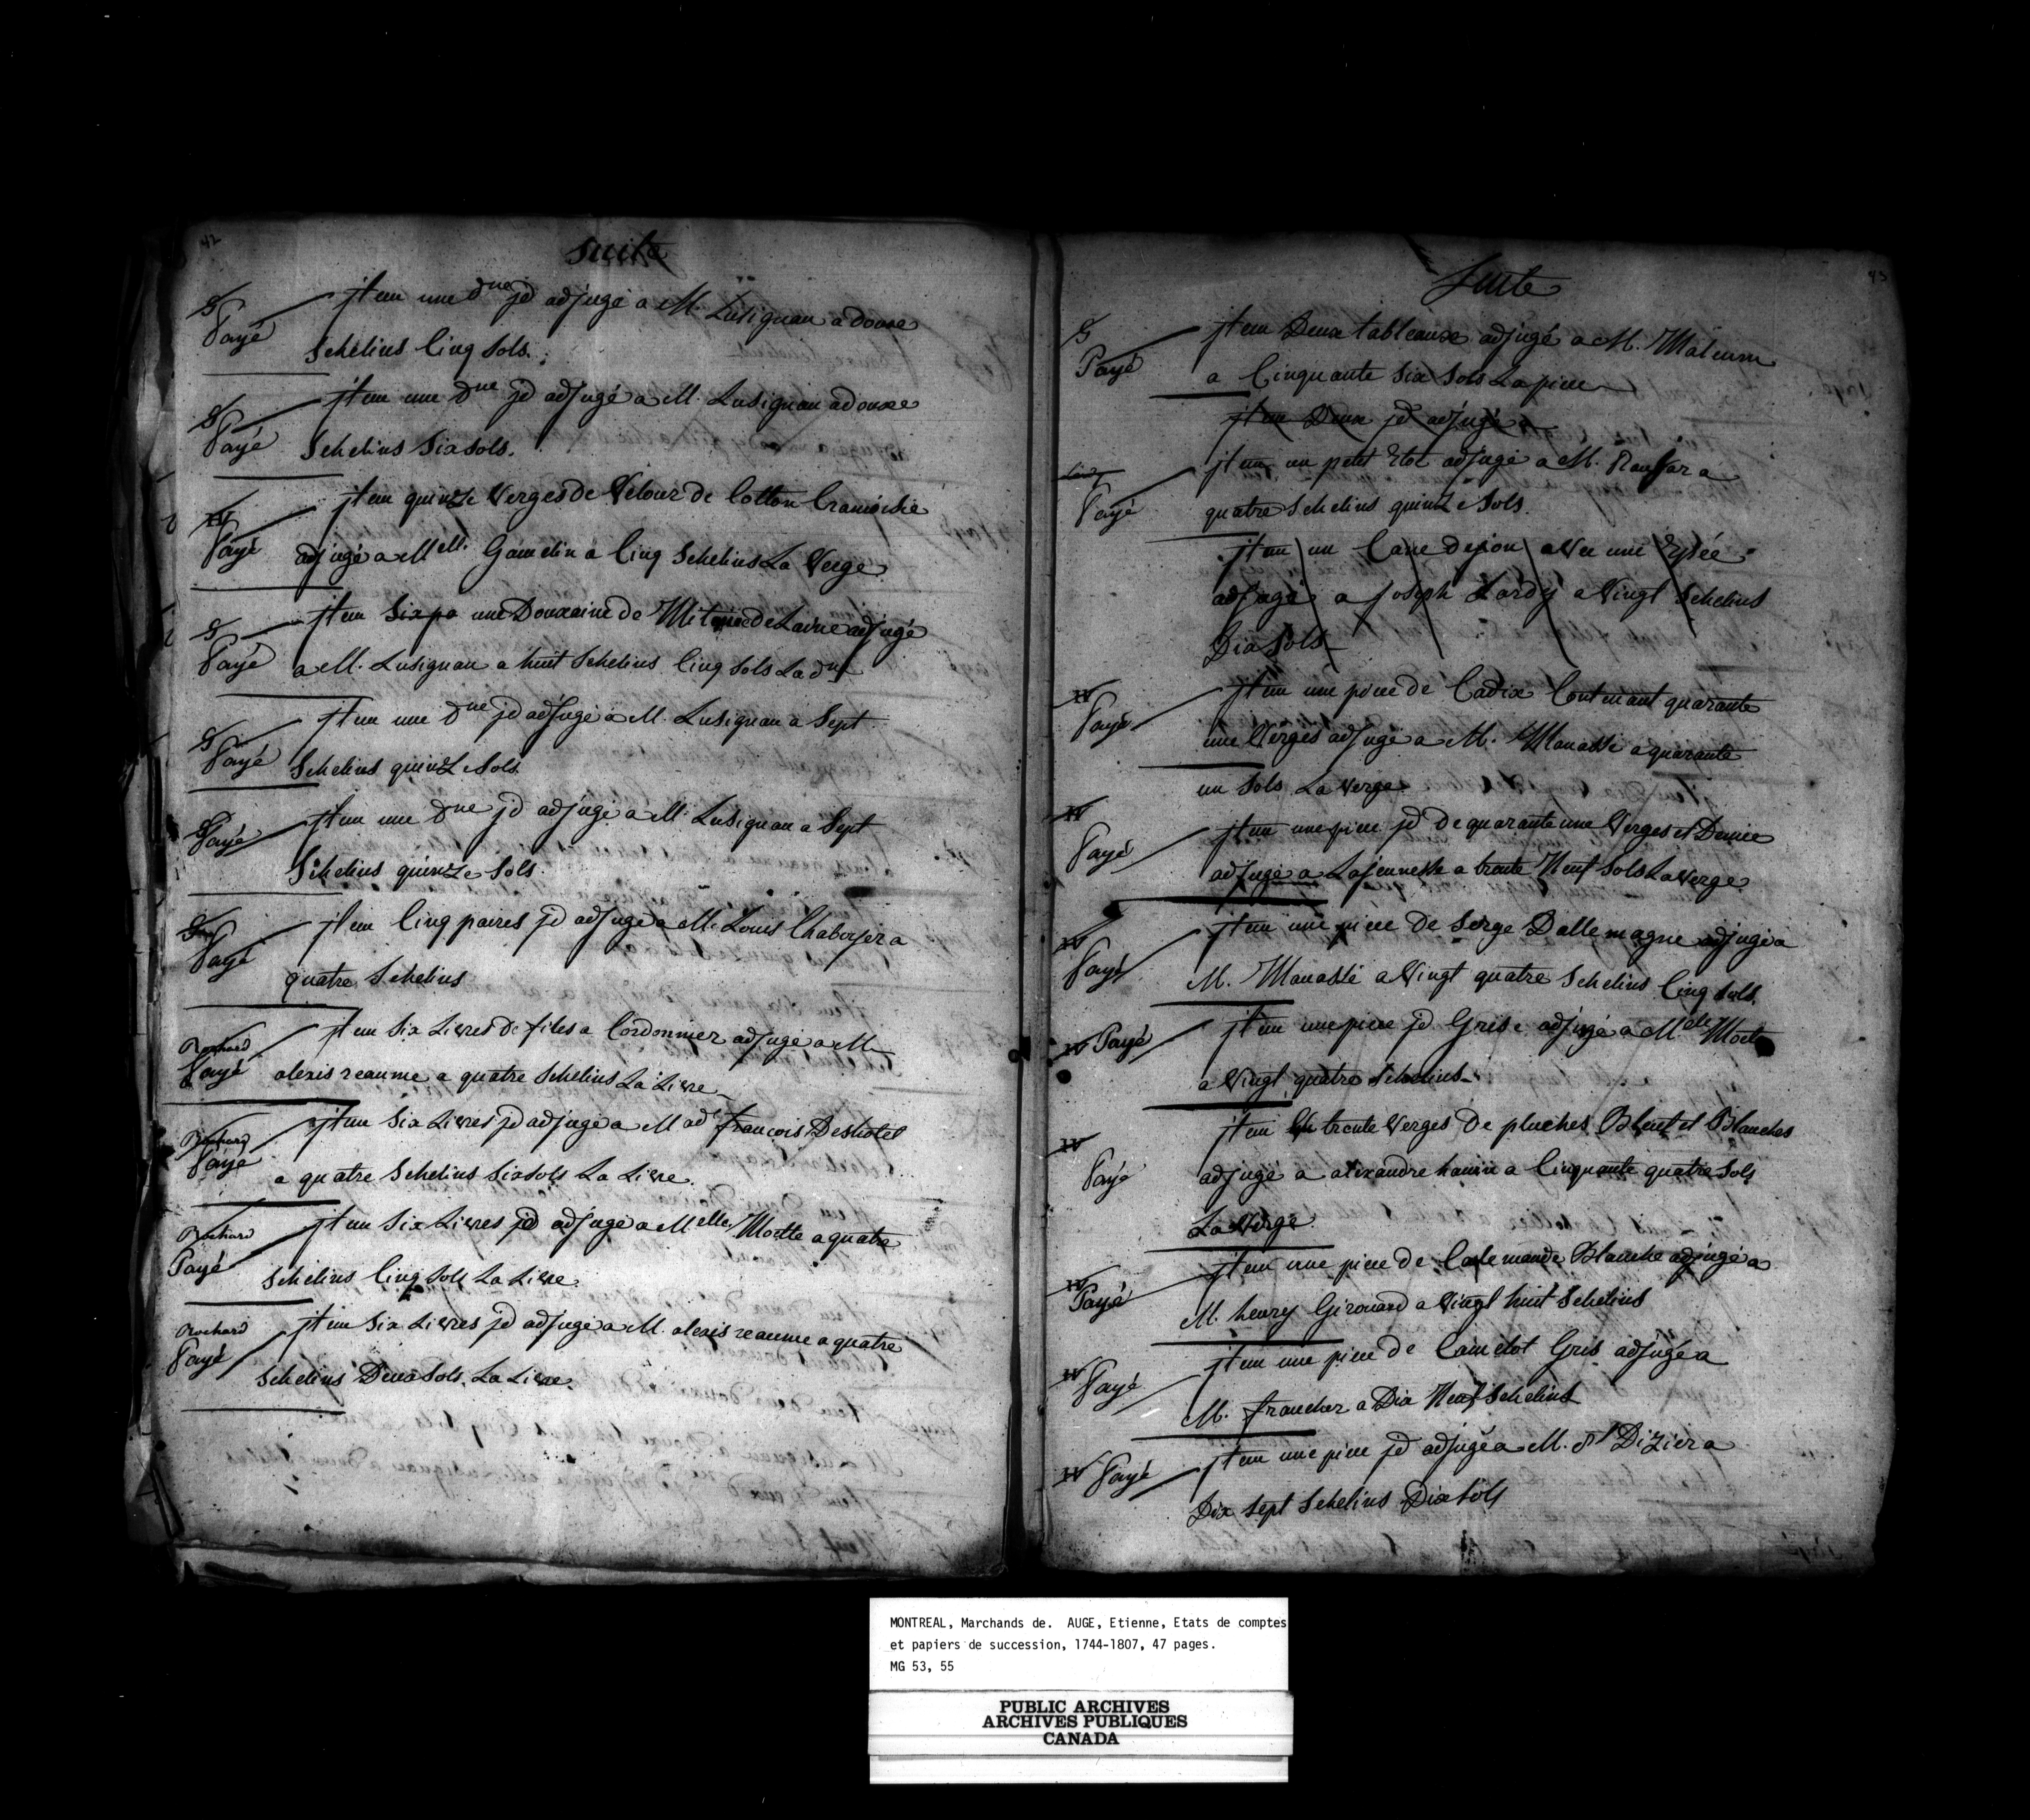 42
Suite
G
Payé
jtem une Dne jd adjugé a M. Lusignan a douse
Schelins Cinq Sols.
G
Payé
jtem une Dne jd adjugé a M. Lusignan a douse
Schelins Six sols.
W
Payé
jtem quinze Verges de Velour de Cotton Cramoisie
adjugé a Melle. Gamelin a Cinq Schelins La Verge
G
Payé
jtem Six pa une Douzaine de Mitaine de Laine adjugé
a M. Lusignan a huit Schelins Cinq Sols La dne
G
Payé
jtem une Dne jd adjugé a M. Lusignan a Sept
Schelins quinze Sols
G
Payé
jtem une Dne jd adjugé a M. Lusignan a Sept
Schelins quinze Sols.
G
Payé
jtem Cinq paires jd adjugé a M. Louis Chaboyer a
quatre Schelins
Rochard
Payé
jtem Six Livres de files a Cordonnier adjugé a M.
alexis reaume a quatre Schelins La Livre
Rochard
Payé
jtem Six Livres jd adjugé a Made francois Deshotel
a quatre Schelins Six sols La Livre.
Rochard
Payé
jtem Six Livres jd adjugé a Melle Moette a quatre
Schelins Cinq Sols La Livre.
Rochard
Payé
jtem Six Livres jd adjugé a M. alexis reaume a quatre
Schelins Deux Sols. La Livre.
43
Suite
G
Payé
jtem Deux tableaux adjugé a M. Malcum
a Cinquante Six Sols La piece
jtem Deux jd adjugé a
Payé
jtem un petit Etot adjugé a M. a
quatre Schelins quinze Sols.
jtem un Cane dejon avec une Epée
adjugé a Joseph Lardy a Vingt Schelins
Dix Sols
W
Payé
jtem une piece de Cadix Contenant quarante
une Verges adjugé a M. Manassé a quarante
un Sols La Verge
W
Payé
jtem une piece jd De quarante une Verges et Demie
adjugé a Lajeunesse a trente Neuf Sols La Verge
W
Payé
jtem une piece de Serge Dallemagne adjugé a
M. Manassé a Vingt quatre Schelins Cinq sols.
W Payé
jtem une piece jd Grise adjugé a Melle Moette
a Vingt quatre Schelins
W
Payé
jtem trente Verges De pluches Bleut et Blanches
adjugé a alexandre hanin a Cinquante quatre Sols
La Verge
W
Payé
jtem une piece de Calemande Blanche adjugé a
M. henry Girouard a Vingt huit Schelins
W
Payé
jtem une piece de Camelot Gris adjugé a
M. francher a Dix Neuf Schelins
W Payé
jtem une piece jd adjugé a M. St Dizier a
Dix Sept Schelins Dix Sols
MONTREAL, Marchands de. AUGE, Etienne, Etats de comptes
et papiers de succession, 1744-1807, 47 pages.
MG 53, 55
PUBLIC ARCHIVES
ARCHIVES PUBLIQUES
CANADA